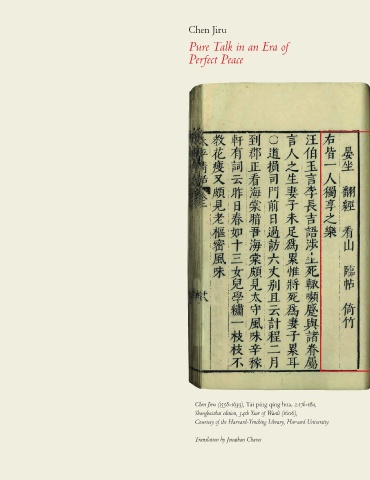 Chen Jiru
Pure Talk in an Era of
Perfect Peace
晏坐 翻經 看山 臨帖 倚竹
右皆一人獨享之樂
汪伯玉言李長吉語涉生死輙嚬蹙與諸眷屬
言人之生妻子未足爲累惟將死爲妻子累耳
〇道損司門前日過訪六丈別且云計程二月
到郡正看海棠暗吾海棠頗見太守風味辛稼
軒有詞云昨日春如十三女兒學繡一枝枝不
教花瘦又頗見老樞密風味
Chen Jiru (1558-1639), Tai ping qing hua,
Shangbaizhai edition, 34th Year of Wanli (1606),
Courtesy of the Harvard-Yenching Library, Harvard University
Translation by Jonathan Chaves